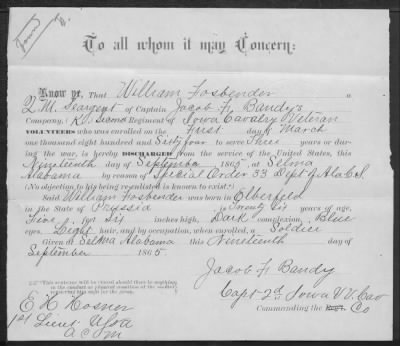 To all whom it may Concern:
Know ye, That William Fosbender a
Q. M. Seargent of Captain Jacob F. Bandy's
Company, (K) Second Regiment of Iowa Cavalry Veteran
VOLUNTEERS who was enrolled on the First day of March
one thousand eight hundred and Sixty four to serve Three years or dur-
ing the war, is hereby DISCHARGED from the service of the United States, this
Nineteenth day of September 1865, at Selma
Alabama by reason of Special Order 33 Dept of Ala C.S.
(No objection to his being re-enlisted is known to exist.)
Said William Fosbender was born in Elberfeld
in the State of Prussia is Twenty Six years of age,
Five feet Six inches high, Dark complexion, Blue
eyes, Light hair, and by occupation, when enrolled, a Soldier
Given at Selma Alabama this Nineteenth day of
September 1865.
Jacob F. Bandy
Capt 2d Iowa V V Cav
Commanding the Co
E H Hosner
1st Lieut
A C M